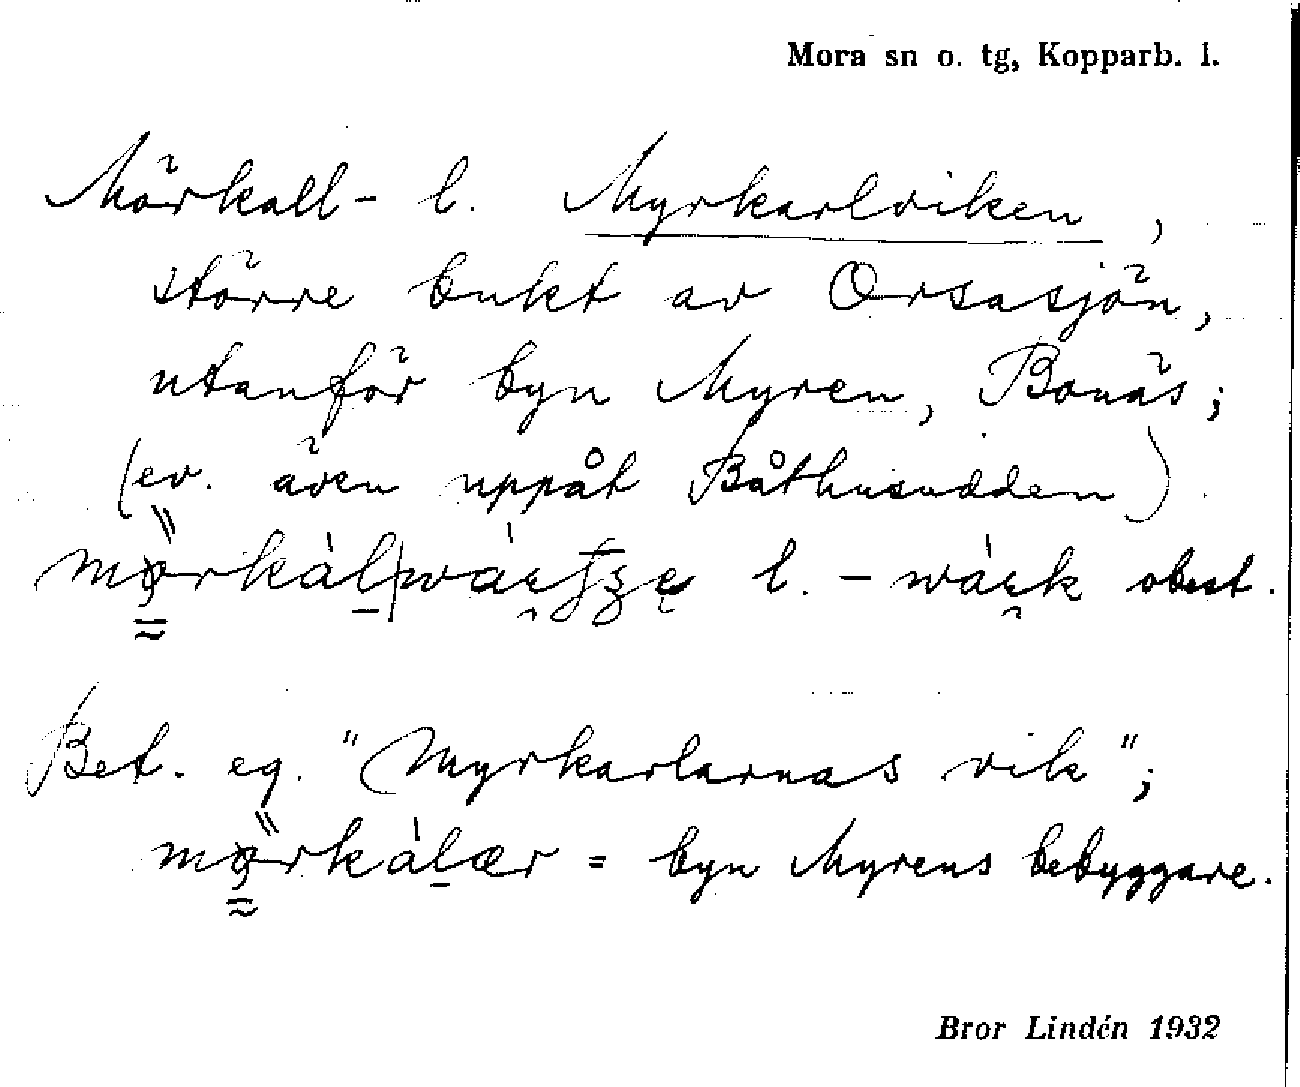 Mora sn o. tg, Kopparb. l.
Mörkall- l. Myrkarlviken,
större bukt av Orsasjön,
utanför byn Myren, Bonäs;
(ev. även uppåt Båthusudden)
l. - wá̀ck obest.
Bet. eg. "Myrkarlarnas vik";
= byn Myrens bebyggare.
Bror Lindén 1932